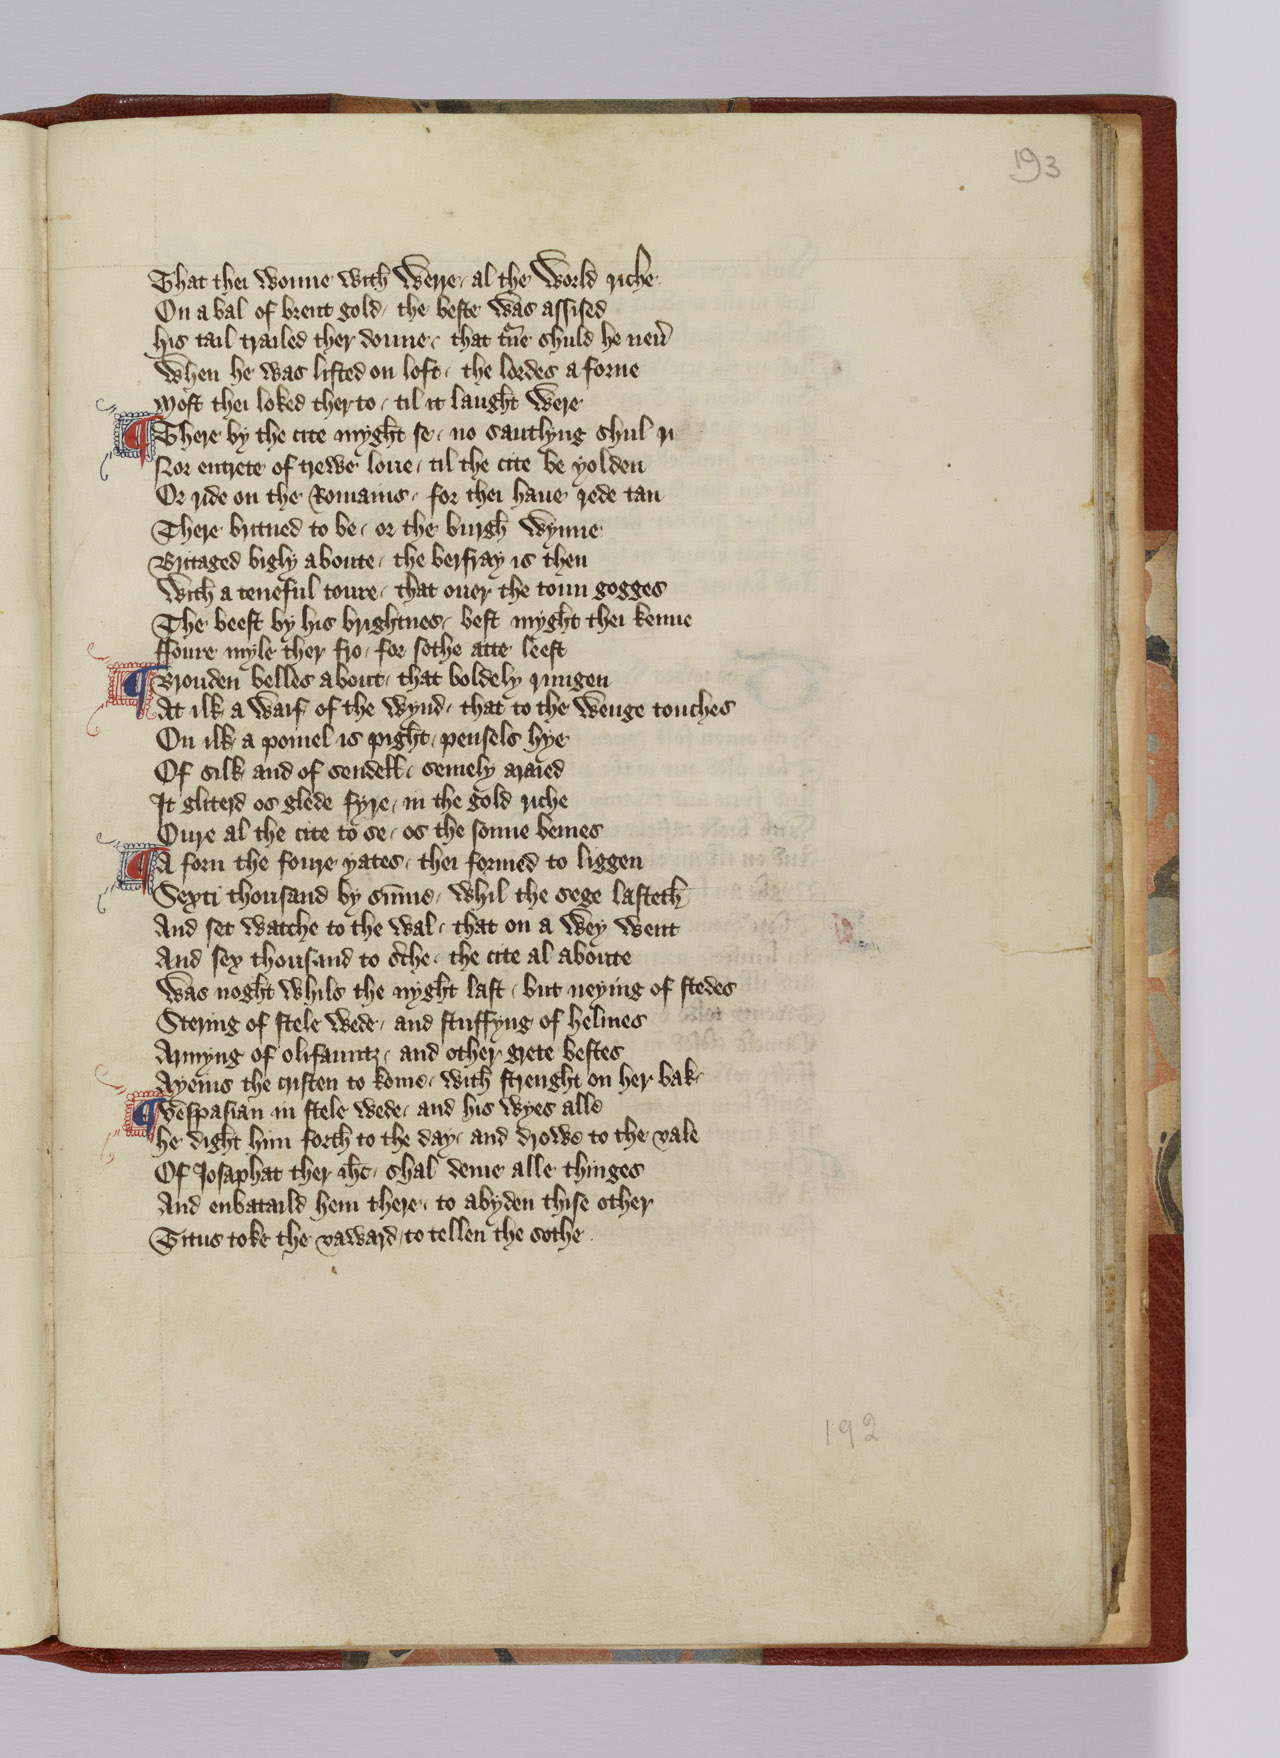 193
That thei wonne with werre / al the world riche
On a bal of brent gold / the beste was assised
his tail trailed ther doune / that t̄ne shuld he neu̕
When he was lifted on loft / the lordes a forne
Most thei loked ther to / til it laught were
¶ There by the cite myght se / no sauthyng shul ri
Nor entrete of trewe loue / til the cite be yolden
Or ride on the Romains / for thei haue rede tan
There britned to be / or the burgh wynne
Britaged bigly aboute / the berfray is then
With a teneful toure / that ouer the toun gogges
The beest by his brightnes / best myght thei kenne
ffoure myle ther fro / for sothe atte leest
¶ Brouden belles about / that boldely ringen
At ilk a waif of the wynd / that to the wenge touches
On ilk a pomel is pight / pensels hye
Of silk and of sendell / semely araied
It gliterd os glede fyre / in the gold riche
Oure al the cite to se / os the sonne bemes
¶ A forn the foure yates / thei formed to liggen
Sexti thousand by sūme / whil the sege lasteth
And set watche to the wal / that on a wey went
And sex thousand to sc̕he / the cite al aboute
Was noght whils the nyght last / but neying of stedes
Stering of stele wede / and stuffyng of helmes
Armyng of olifauntz / and other grete bestes
Ayeins the cristen to kome / with strenght on her bak
¶ Vespasian in stele wede / and his wyes alle
he dight him forth to the day / and drowe to the vale
Of Josaphat ther ihc / shal deme alle thinges
And enbataild hem there / to abyden thise other
Titus toke the vaward / to tellen the sothe
192